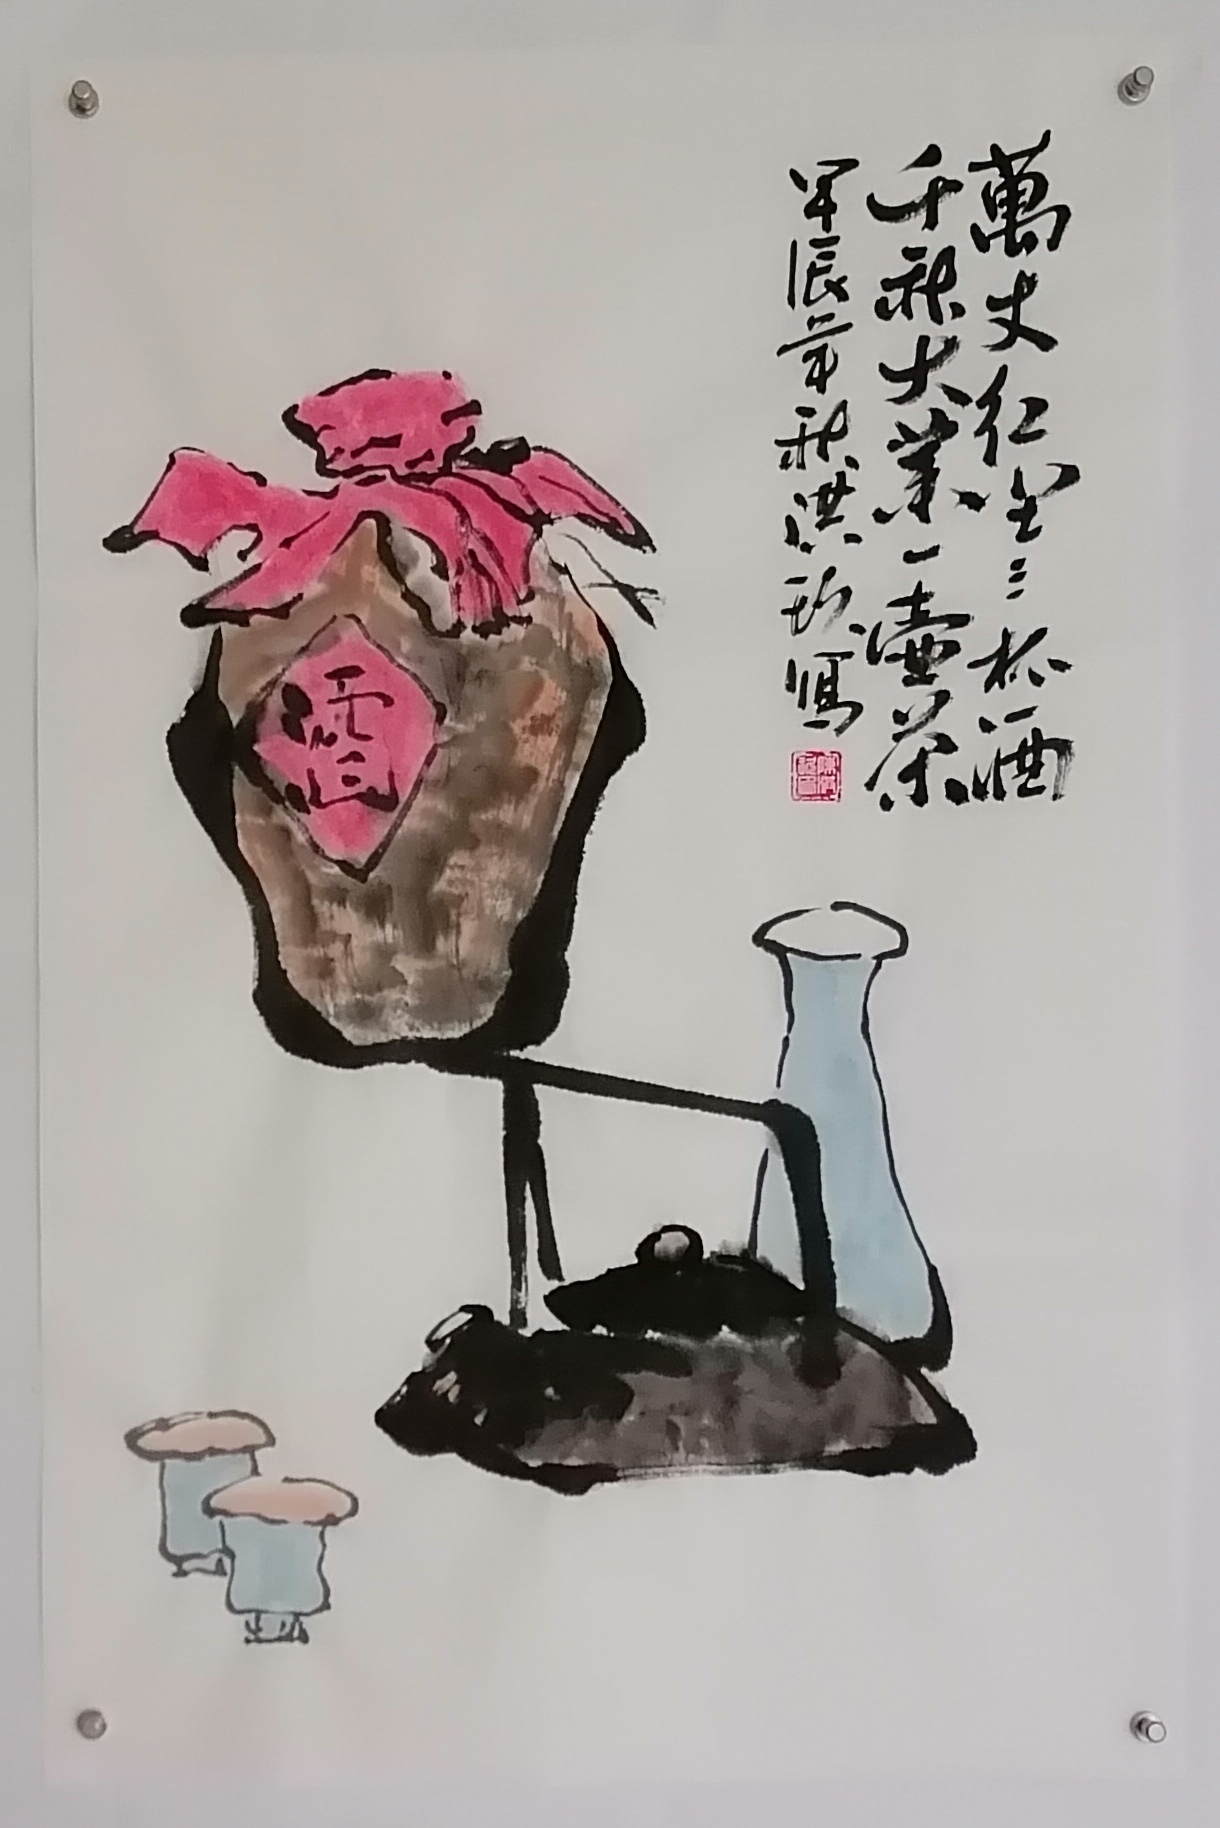 萬丈红尘三杯酒
千秋大業一壺茶
甲辰年秋洪新写
酒